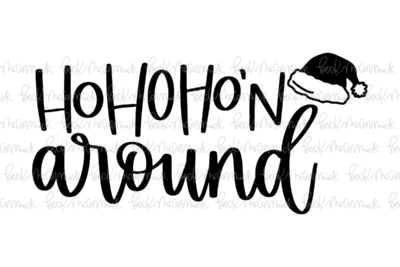 HOHOHO'N
around